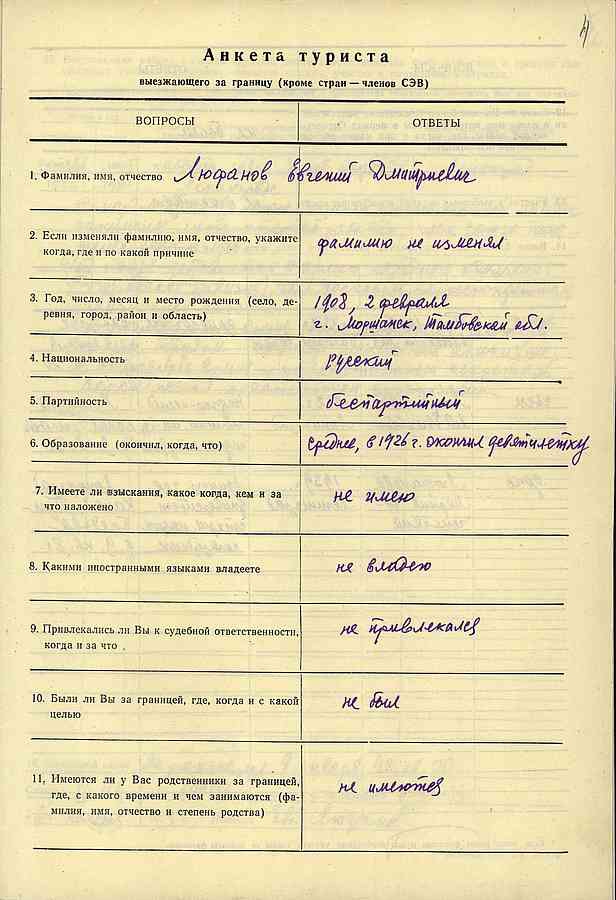 4
Анкета туриста
выезжающего за границу (кроме стран — членов СЭВ)
ВОПРОСЫ
ОТВЕТЫ
1. Фамилия, имя, отчество
Люфанов Евгений Дмитриевич
2. Если изменяли фамилию, имя, отчество, укажите
когда, где и по какой причине
фамилию не изменял
3. Год, число, месяц и место рождения (село, де-
ревня, город, район и область)
1908, 2 февраля
г. Моршанск, Тамбовской обл.
4. Национальность
русский
5. Партийность
беспартийный
6. Образование (окончил, когда, что)
среднее, в 1926 г. окончил девятилетку
7. Имеете ли взыскания, какое когда, кем и за
что наложено
не имею
8. Какими иностранными языками владеете
не владею
9. Привлекались ли Вы к судебной ответственности,
когда и за что .
не привлекался
10. Были ли Вы за границей, где, когда и с какой
целью
не был
11. Имеются ли у Вас родственники за границей,
где, с какого времени и чем занимаются (фа-
милия, имя, отчество и степень родства)
не имеются